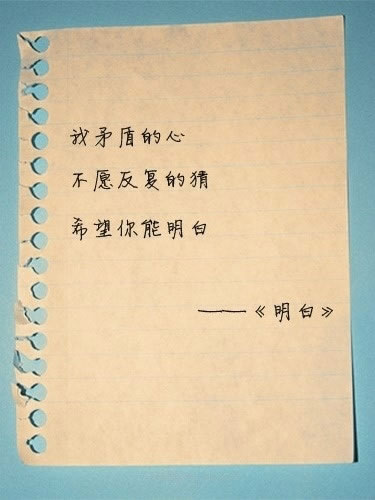 我矛盾的心
不愿反复的猜
希望你能明白
——《明白》